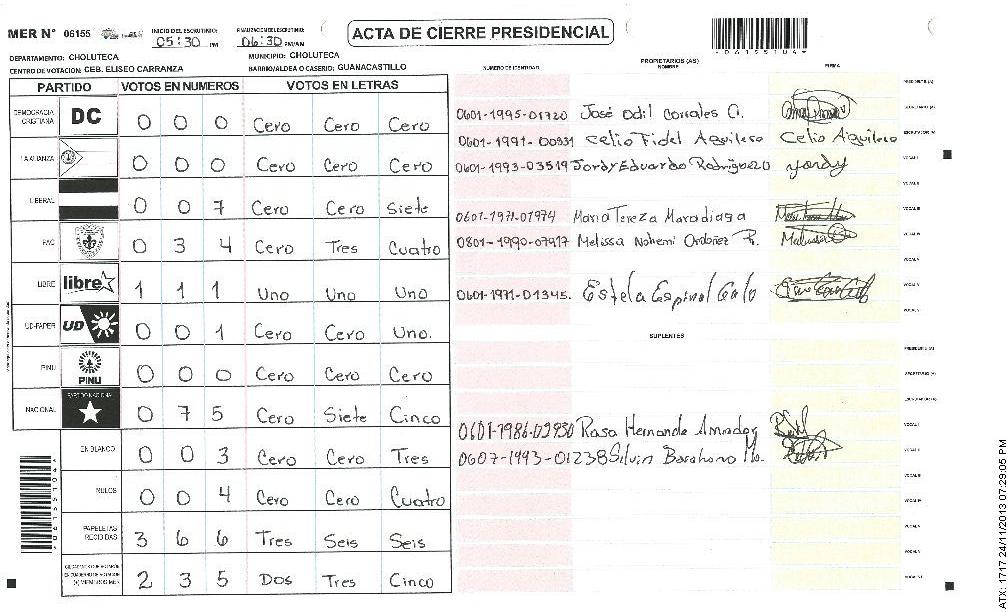 MER N° 06155
INICIO DEL ESCRUTINIO: 05:30 PM
FINALIZACION ESCRUTINIO: 06:30 PM/AM
ACTA DE CIERRE PRESIDENCIAL
DEPARTAMENTO: CHOLUTECA
MUNICIPIO: CHOLUTECA
CENTRO DE VOTACION: CEB. ELISEO CARRANZA
BARRIO/ALDEA O CASERIO: GUANACASTILLO
PARTIDO VOTOS EN NUMEROS VOTOS EN LETRAS
DEMOCRACIA CRISTIANA DC 0 0 0 Cero Cero Cero
LA ALIANZA 0 0 0 Cero Cero Cero
LIBERAL 0 0 7 Cero Cero Siete
PAC 0 3 4 Cero Tres Cuatro
LIBRE libre 1 1 1 Uno Uno Uno
UD-FAPER UD 0 0 1 Cero Cero Uno.
PINU PINU 0 0 0 Cero Cero Cero
NACIONAL PARTIDO NACIONAL 0 7 5 Cero Siete Cinco
EN BLANCO 0 0 3 Cero Cero Tres
NULOS 0 0 4 Cero Cero Cuatro
PAPELETAS RECIBIDAS 3 6 6 Tres Seis Seis
2 3 5 Dos Tres Cinco
*06155104*
NUMERO DE IDENTIDAD
PROPIETARIOS (AS)
NOMBRE
FIRMA
PRESIDENTE (A)
0601-1995-01720 José Odil Corrales O.
SECRETARIO (A)
0601-1991-00931 Celio Fidel Aguilera Celio Aguilera
ESCRUTADOR (A)
0601-1993-03519 Jordy Eduardo Rodriguez Jordy
VOCAL I
VOCAL II
0601-1971-01974 Maria Tereza Maradiaga
VOCAL III
0801-1990-07917 Melissa Nohemi Ordoñez R.
VOCAL IV
VOCAL V
0601-1971-01345. Estela Espinal Galo
SUPLENTES
PRESIDENTE (A)
SECRETARIO (A)
ESCRUTADOR (A)
0601-1986-02930 Rosa Hernande Amador
VOCAL I
0607-1993-01238 Silvin Barahona Mo.
VOCAL II
ATX: 1717 24/11/2013 07:29:05 PM